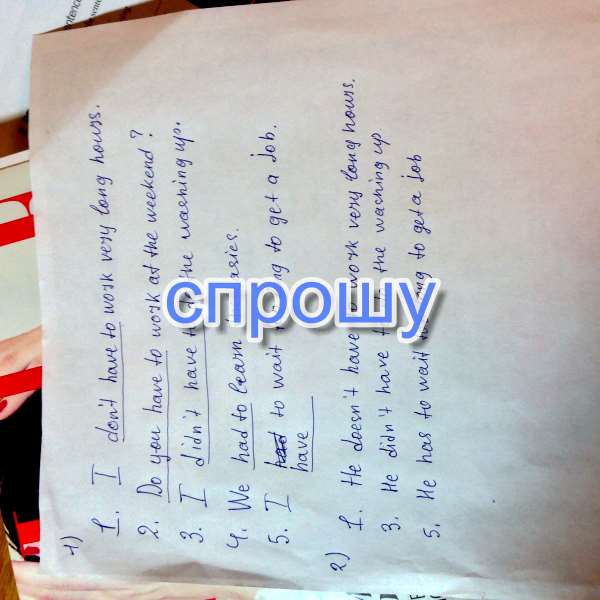 1)
1. I don't have to work very long hours.
2. Do you have to work at the weekend?
3. I didn't have the washing up.
4. We had to learn
5. I had to wait to get a job.
have
2)
1. He doesn't have work very long hours.
3. He didn't have the washing up
5. He has to wait to get a job
спрошу